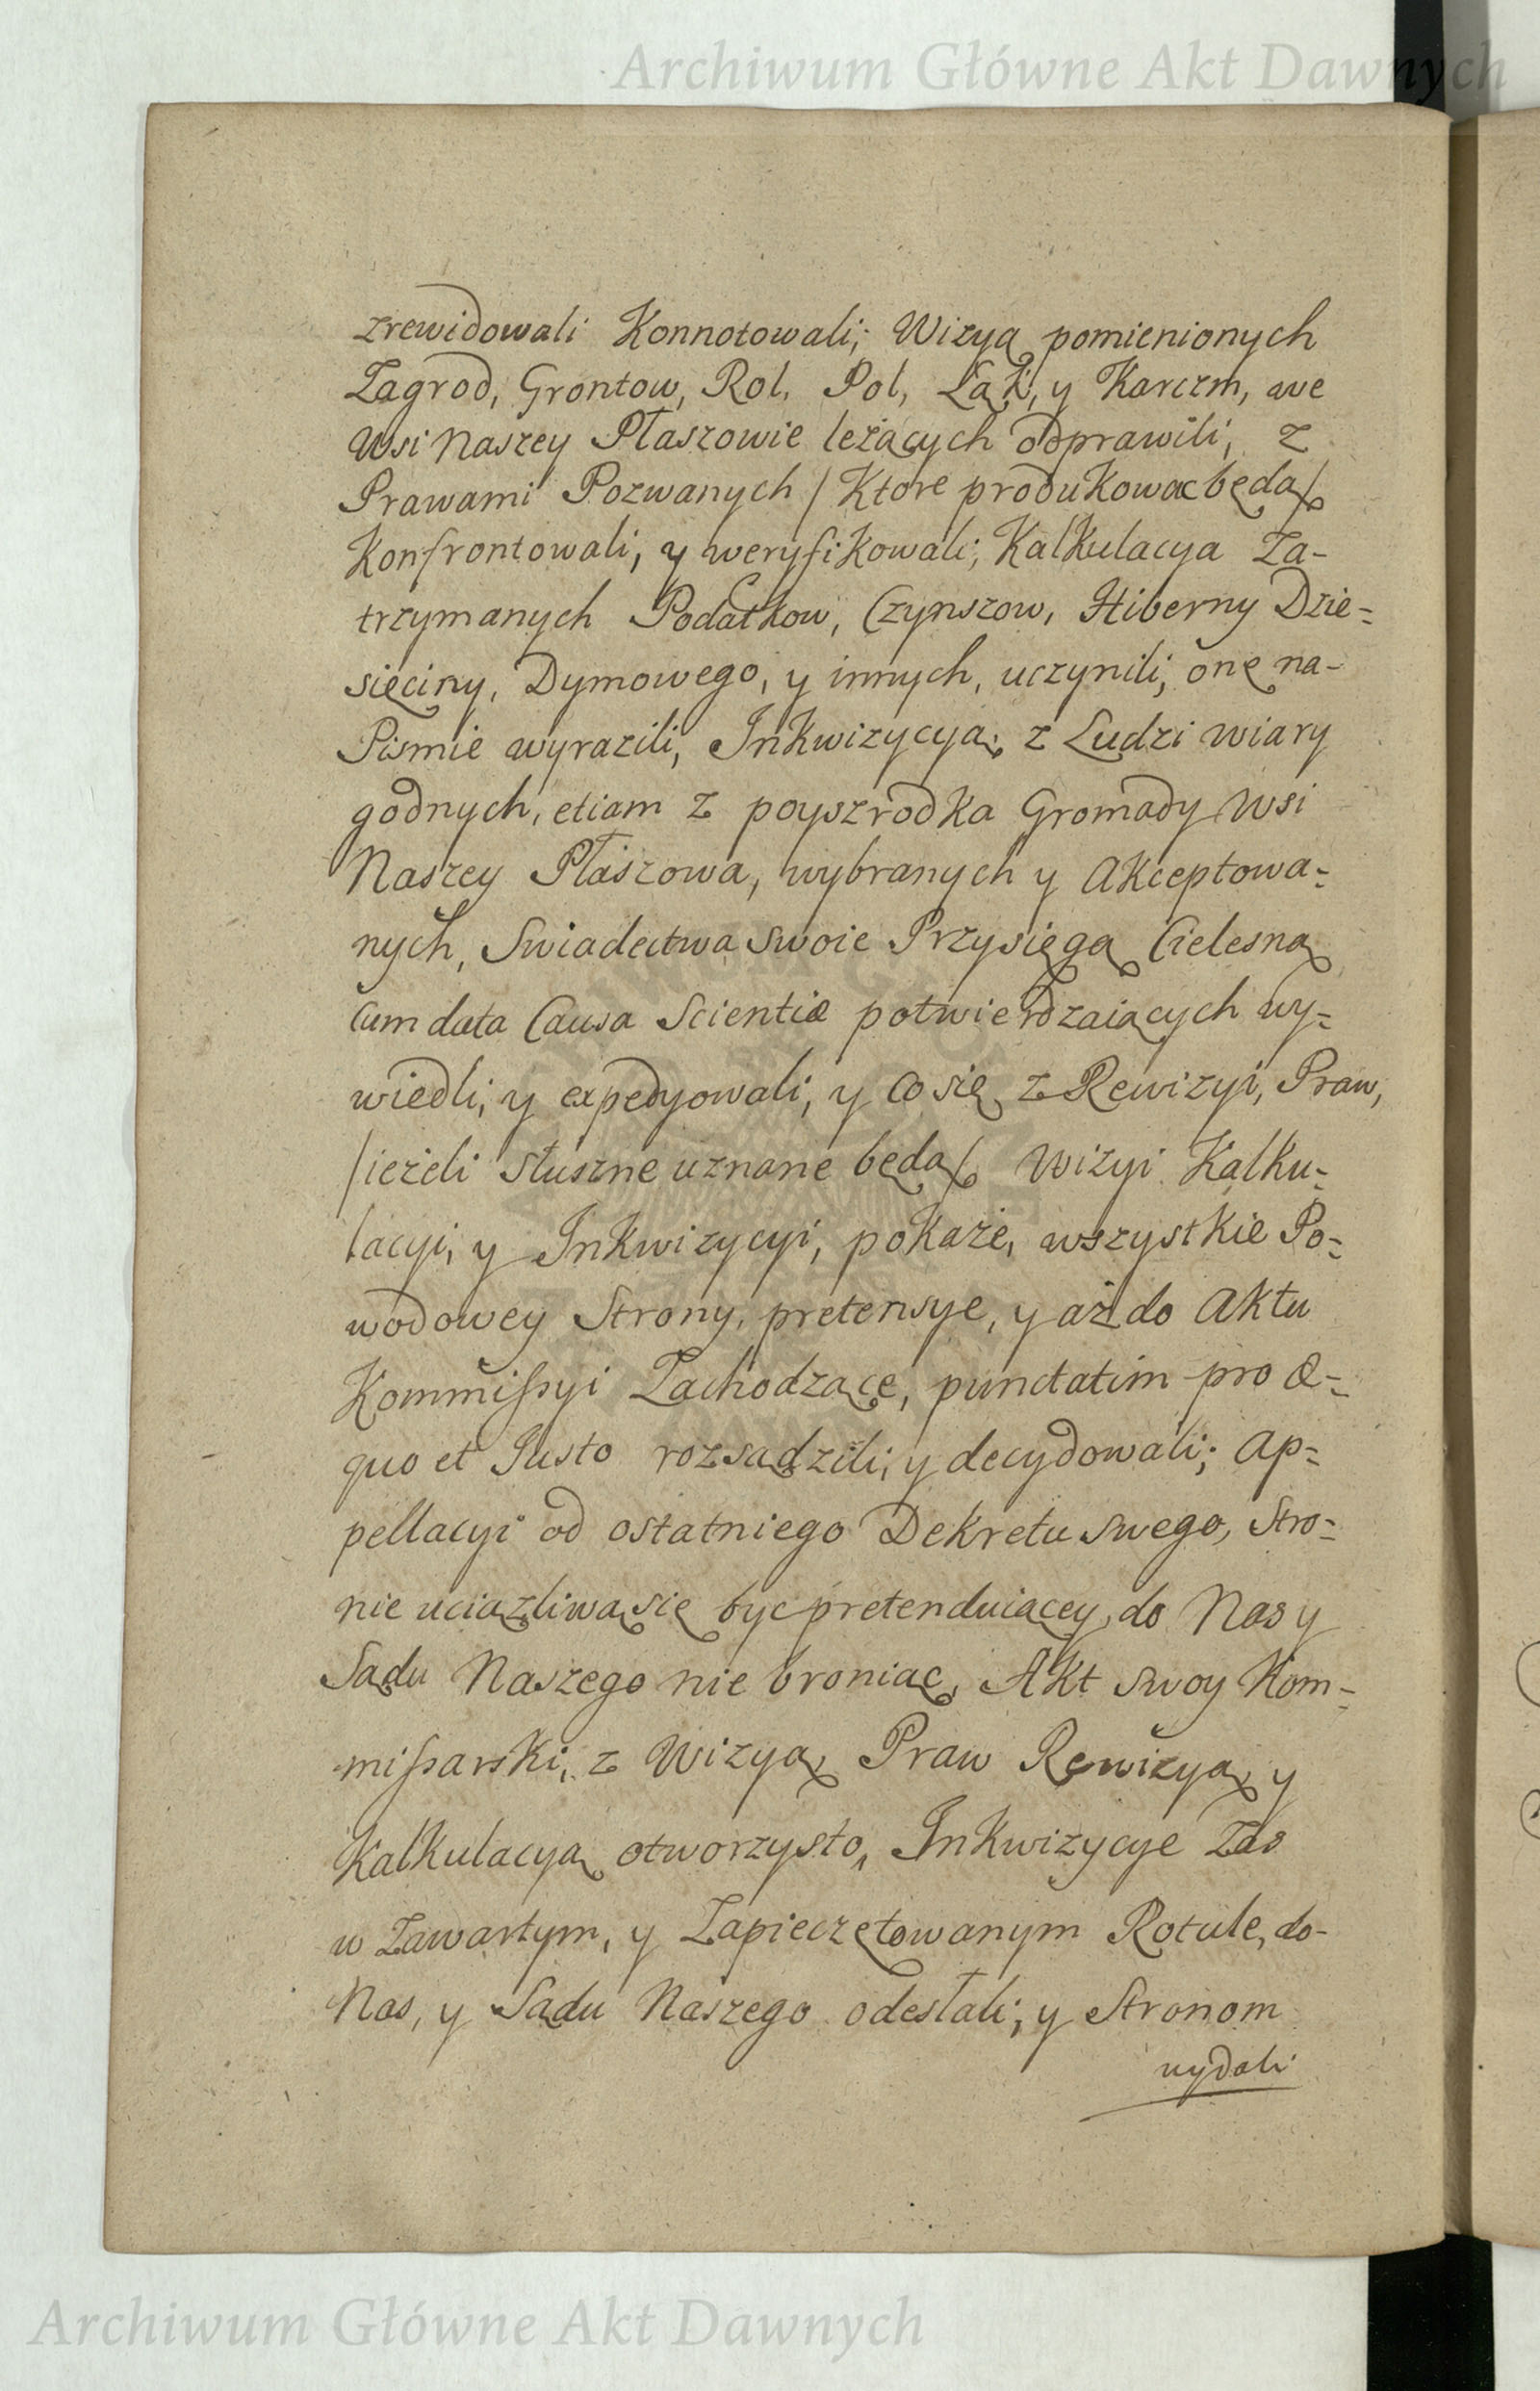 Archiwum Główne Akt Dawnych
zrewidowali Konnotowali; Wizyą pomienionych
Zagrod, Grontow, Rol, Pol, Łąk, y Karczm, we
Wsi Naszey Płaszowie leżących odprawili, z
Prawami Pozwanych /Ktore produkowac będą/
Konfrontowali, y weryfikowali; Kalkulacya Za-
trzymanych Podatkow, Czynszow, Hiberny Dzie=
sięciny, Dymowego, y innych, uczynili, onę na-
Pismie wyrazili, Inkwizycyą z Ludzi wiary
godnych, etiam z poyszrodka Gromady Wsi
Naszey Płaszowa, wybranych y Akceptowa=
nych, Swiadectwa swoie Przysięgą Cielesną
Cum data Causa Scientiæ potwierdzaiących wy=
wiedli, y expedyowali, y co się z Rewizyi, Praw,
/ieżeli słuszne uznane będą/ Wizyi Kalku=
lacyi, y Inkwizycyi, pokaże, wszystkie Po=
wodowey Strony, pretensye, y aż do Aktu
Kommissyi Zachodzące, punctatim pro æ=
quo et Justo rozsądzili, y decydowali; Ap=
pellacyi od ostatniego Dekretu swego, Stro=
nie uciążliwą się byc pretenduiącey, do Nas y
Sądu Naszego nie broniąc, Akt swoy Kom=
missarski, z Wizyą, Praw Rewizyą, y
Kalkulacyą otworzysto, Inkwizycye Zas
w Zawartym, y Zapieczętowanym Rotule, do-
Nas, y Sądu Naszego odesłali; y Stronom
wydali
Archiwum Główne Akt Dawnych